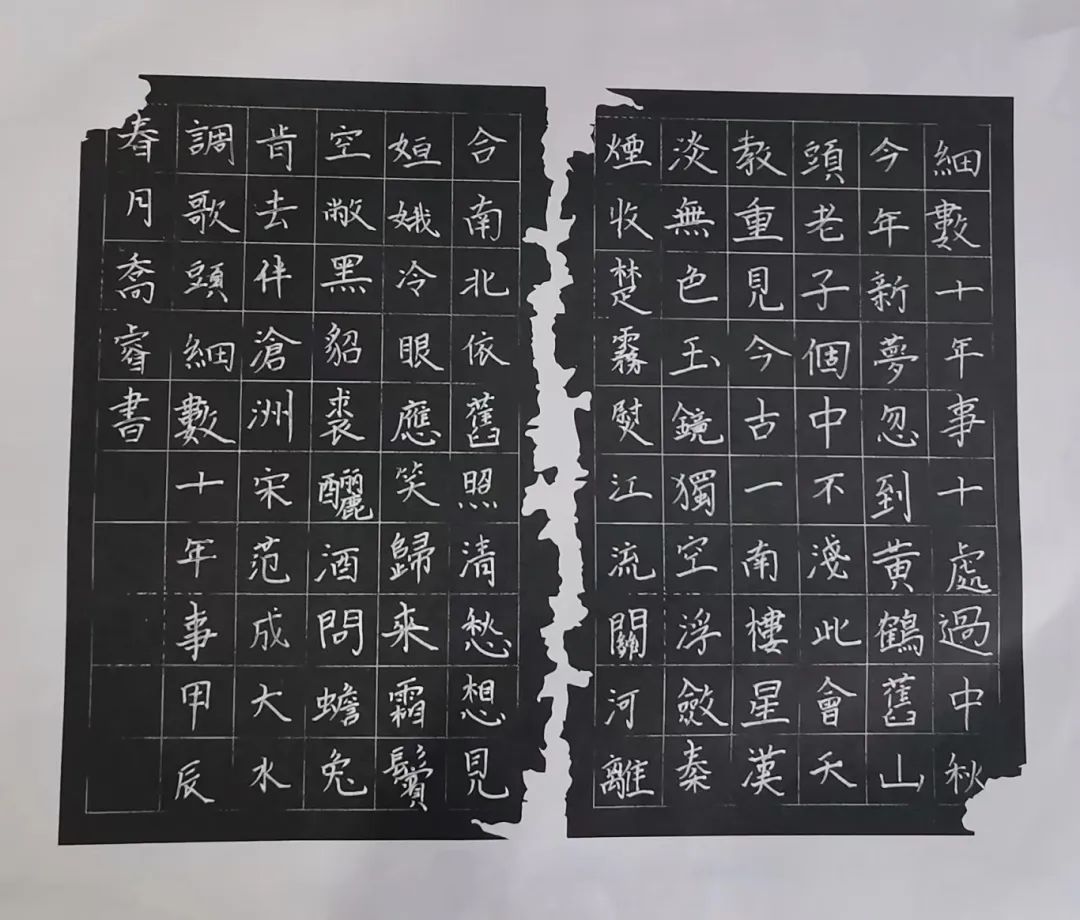 細數十年事十處過中秋
今年新夢忽到黃鶴舊山
頭老子個中不淺此會天
教重見今古一南樓星漢
淡無色玉鏡獨空浮斂秦
煙收楚霧熨江流關河離
合南北依舊照清愁想見
姮娥冷眼應笑歸來霜鬢
空敝黑貂裘釃酒問蟾兔
肯去伴滄洲宋范成大水
調歌頭細數十年事甲辰
春月喬睿書